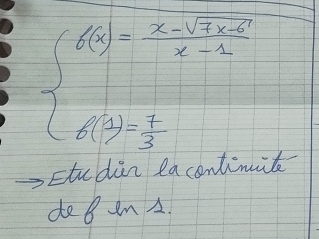 f(x) = x - √7x-6 / x - 1
f(1) = 7/3
→ Etudier la continuité
de f en 1.